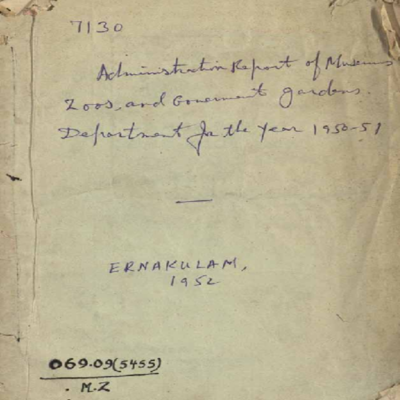 7130
Administration Report of Museums
Zoos, and Government gardens.
Department for the Year 1950-51
ERNAKULAM,
1952
069.09(5455)
M.Z